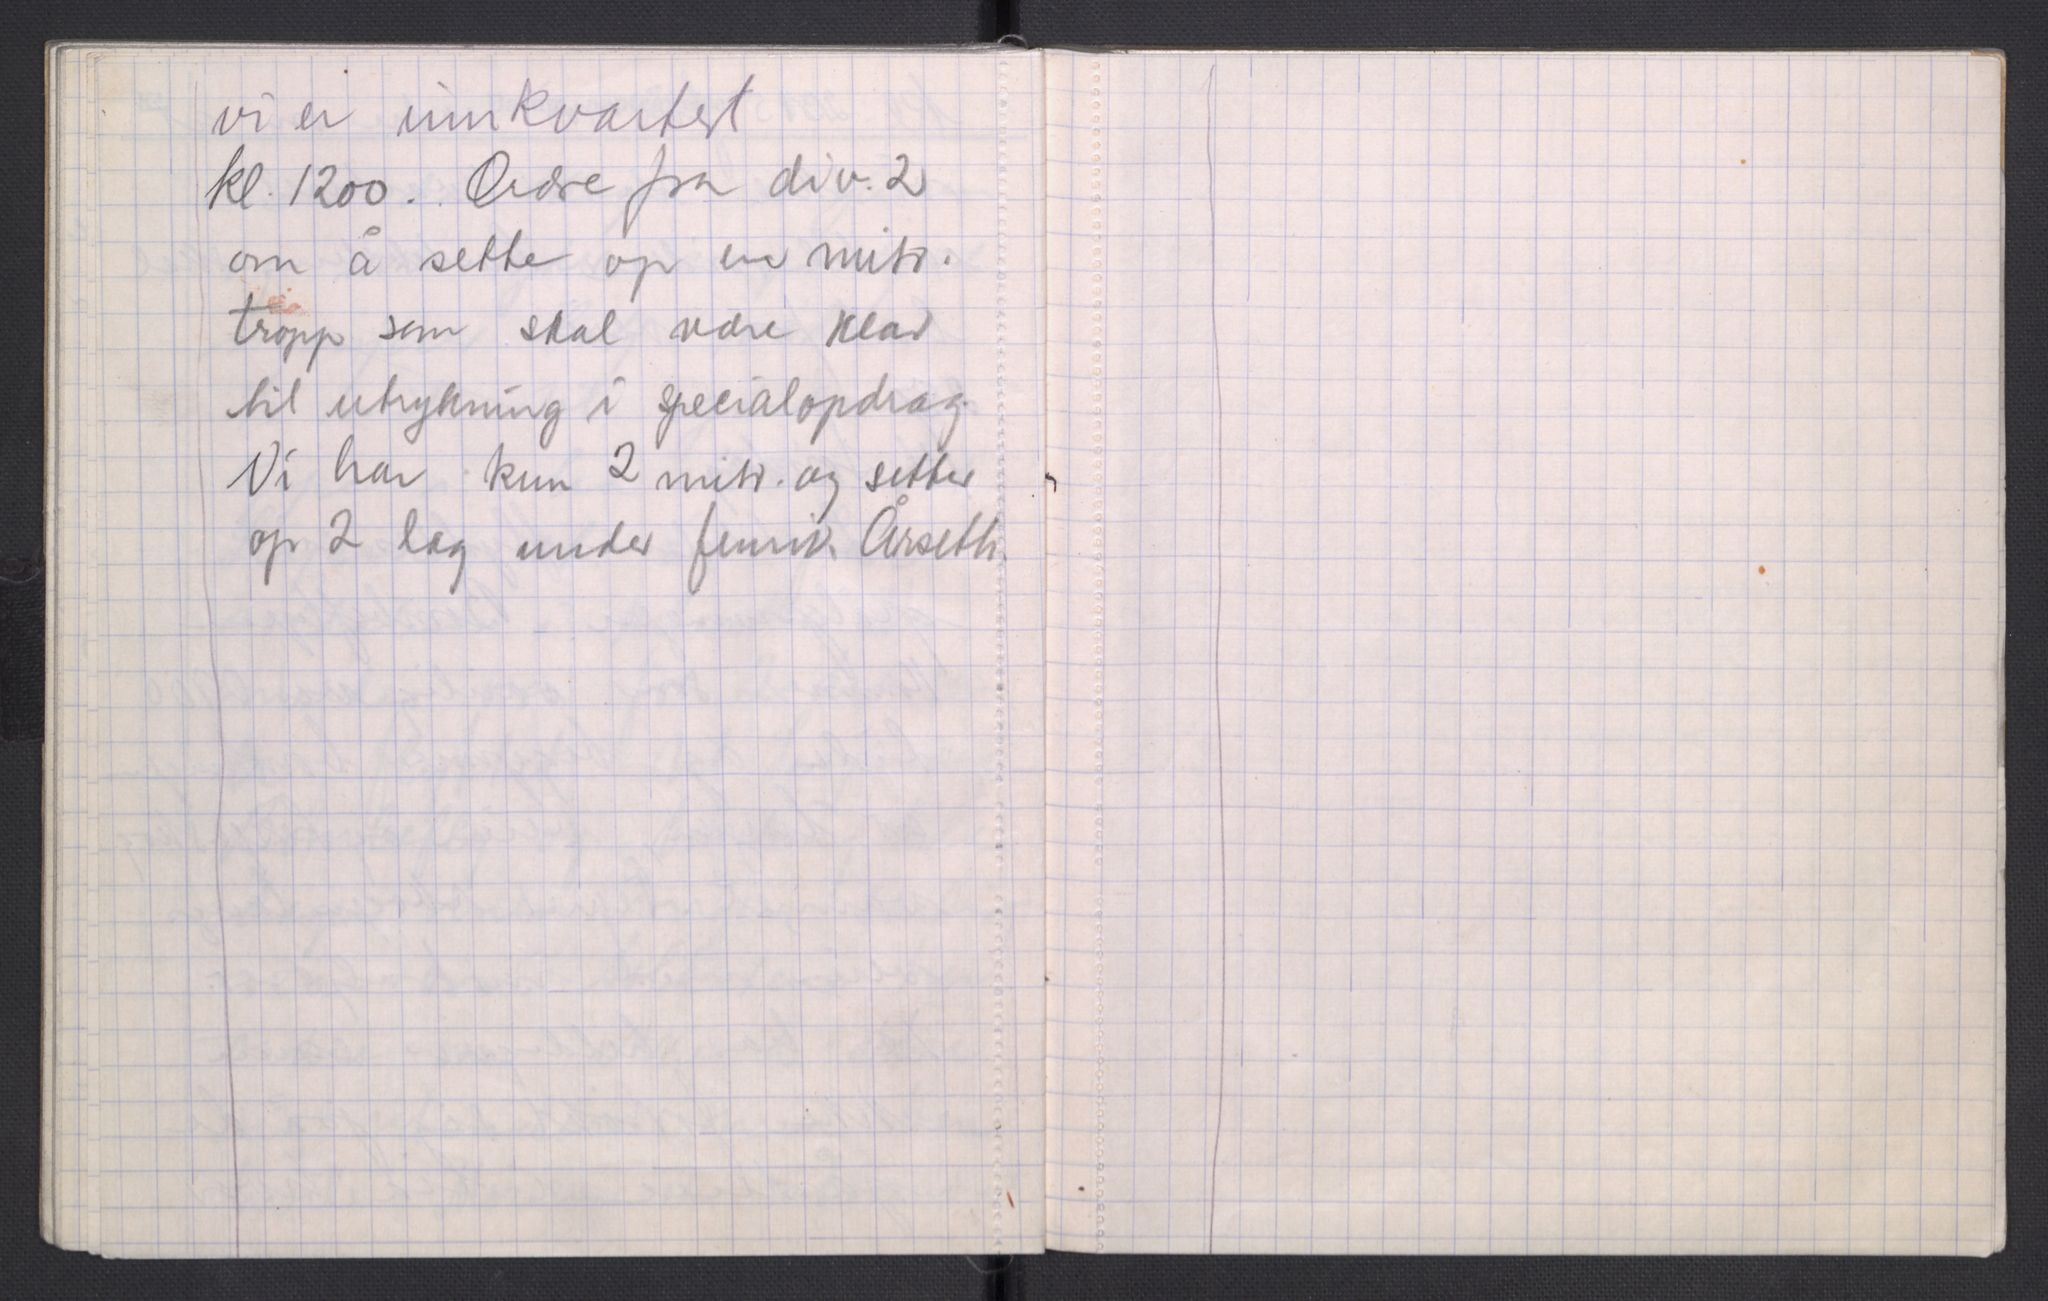 vi er innkvartert
kl. 1200. Ordre fra div. 2
om å sette op en mitr.
tropp som skal være klar
til utrykning i specialopdrag.
Vi har kun 2 mitr. og setter
op 2 lag under fenrik Årseth.